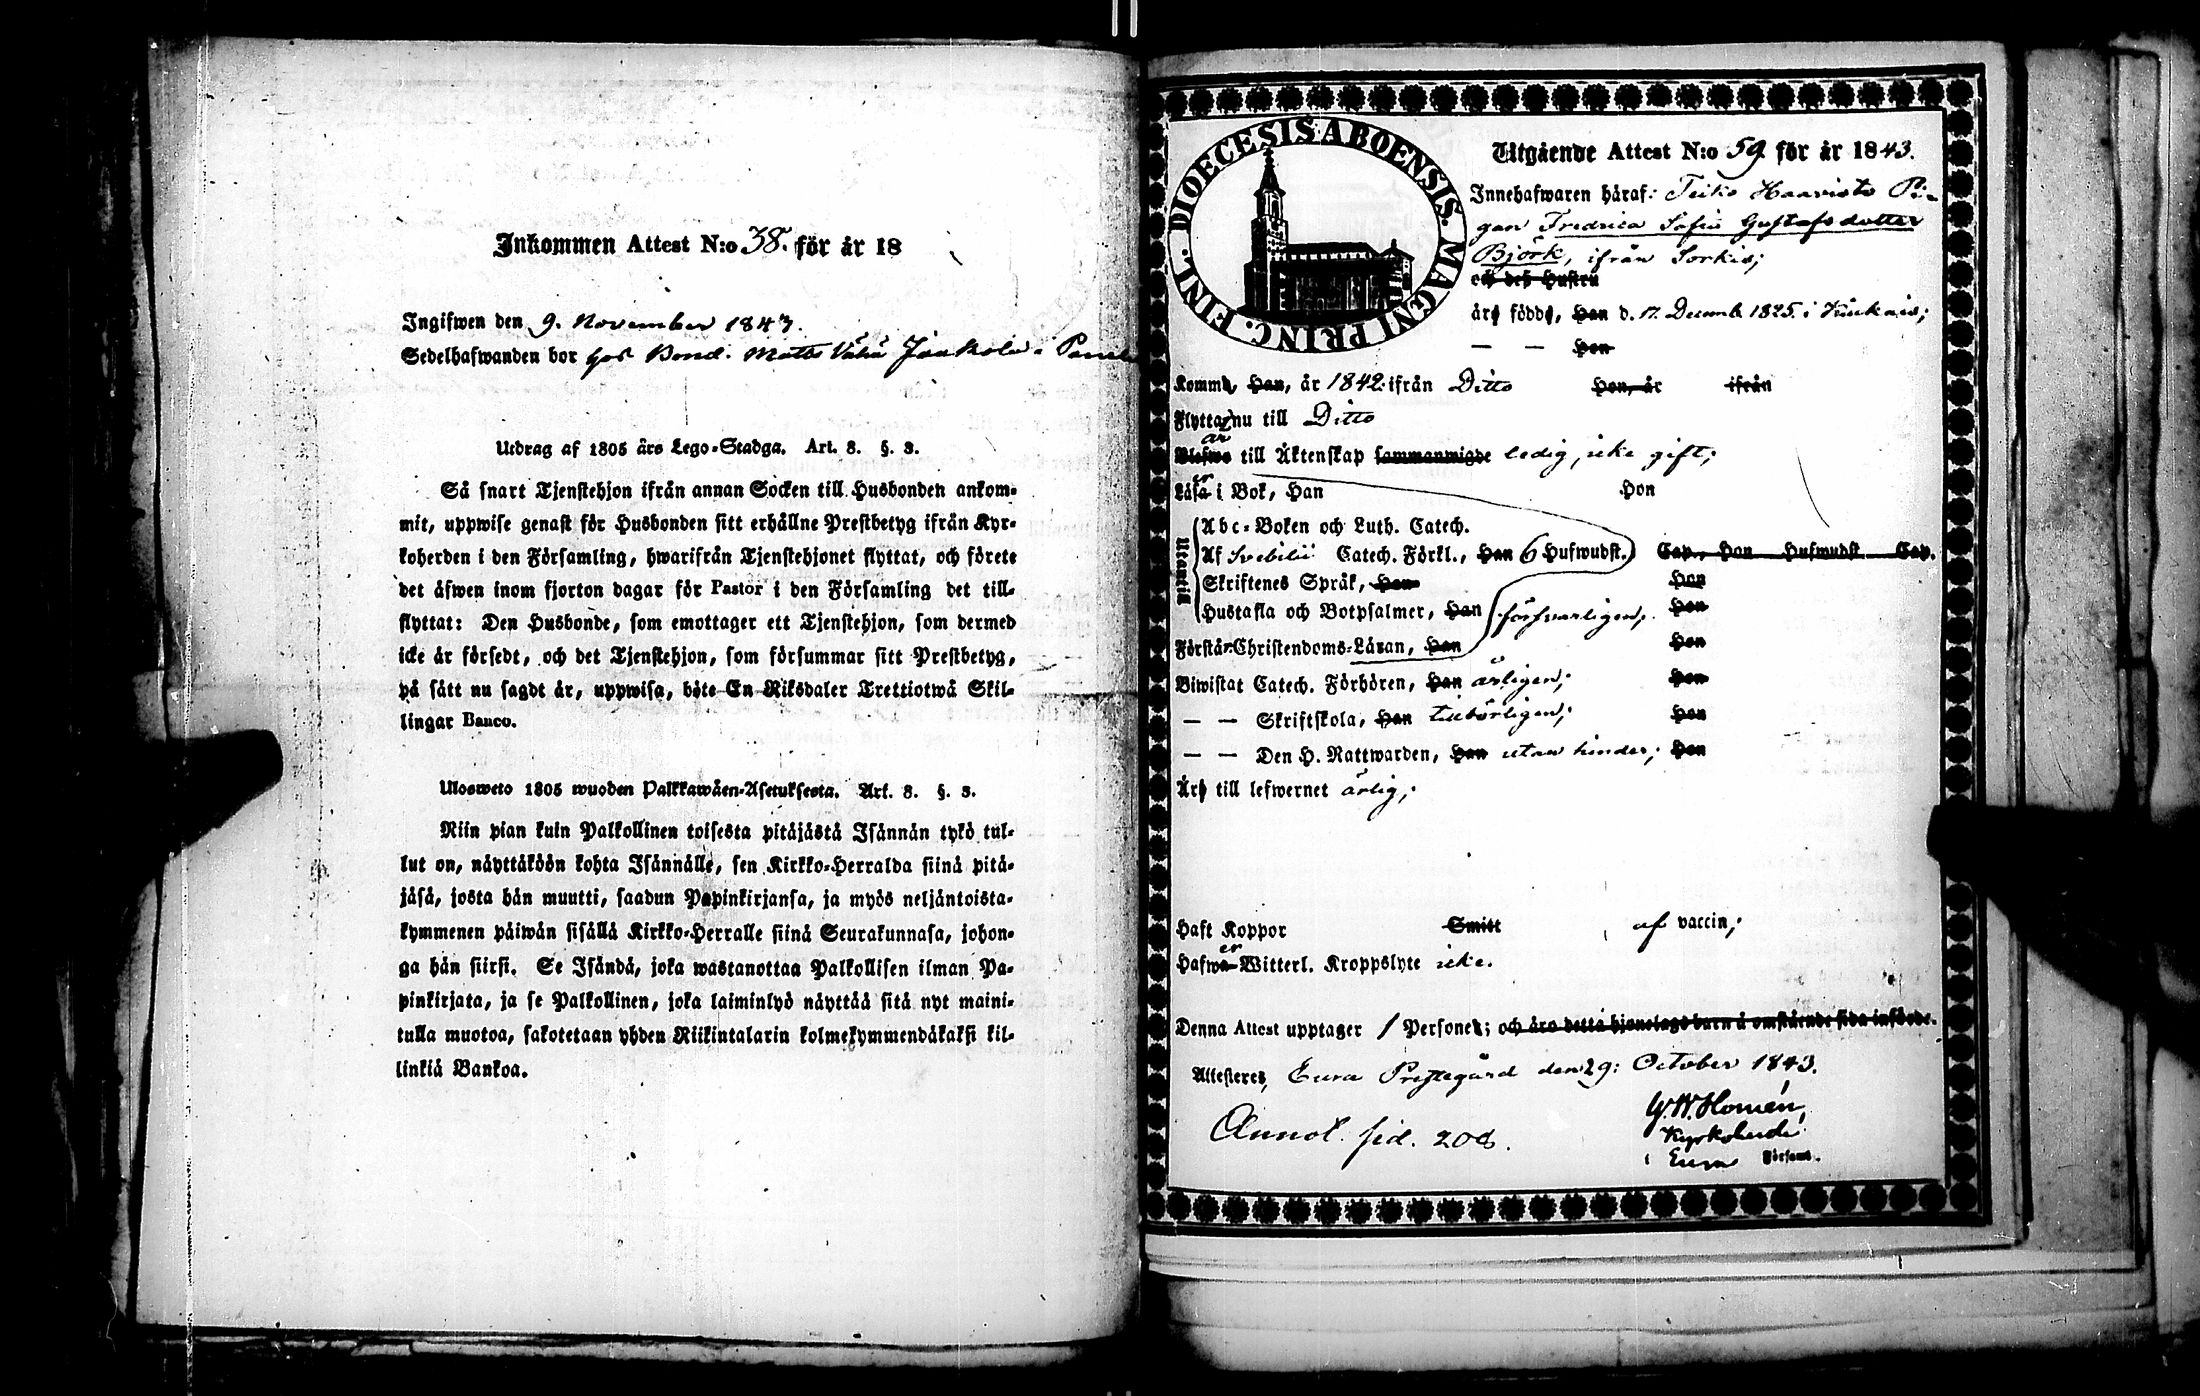 Inkommen Attest N:o 38. för år 18
Ingifwen den 9. November 1843.
Sedelhafwanden bor hos Bond. Matts Vähä Jaakola i
Utdrag af 1805 års Lego-Stadga. Art. 8. §. 3.
Så snart Tjenstehjon ifrån annan Socken till Husbonden ankom-
mit, uppwise genast för Husbonden sitt erhållne Prestbetyg ifrån Kyr-
koherden i den Församling, hwarifrån Tjenstehjonet flyttat, och förete
det äfwen inom fjorton dagar för Pastor i den Församling det till-
flyttat: Den Husbonde, som emottager ett Tjenstehjon, som dermed
icke är försedt, och det Tjenstehjon, som försummar sitt Prestbetyg,
på sätt nu sagdt är, uppwisa, böte En Riksdaler Trettiotwå Skil-
lingar Banco.
Ulosweto 1805 wuoden Palkkawäen-Asetuksesta. Art. 8. §. 3.
Niin pian kuin Palkollinen toisesta pitäjästä Isännän tykö tul-
lut on, näyttäköön kohta Isännälle, sen Kirkko-Herralda siinä pitä-
jäsä, josta hän muutti, saadun Papinkirjansa, ja myös neljäntoista-
kymmenen päiwän sisällä Kirkko-Herralle siinä Seurakunnasa, johon-
ga hän siirsi. Se Isändä, joka wastanottaa Palkollisen ilman Pa-
pinkirjata, ja se Palkollinen, joka laiminlyö näyttää sitä nyt maini-
tulla muotoa, sakotetaan yhden Riikintalarin kolmekymmendäkaksi kil-
linkiä Bankoa.
DIOECESIS ABOENSIS. MAGNI PRINC. FINL.
Utgående Attest N:o 59. för år 1843.
Innehafwaren häraf: Teiko Haavisto Pi-
gan Fredrica Sofia Gustafsdotter
Björk, ifrån Sorkis;
och deß Hustru
är född, Han d. 17. Decemb. 1825. i
— — Hon
Komm, Han, år 1842. ifrån Ditto Hon, år ifrån
Flyttar nu till Ditto
är
till Äktenskap sammanwigde ledig, icke gift;
er
Läsa i Bok, Han Hon
Utantill
Abc-Boken och Luth. Catech.
Af Svebilii Catech. Förkl., Han 6 Hufwudst. Cap., Hon Hufwudst Cap.
Skriftenes Språk, Han Hon
Hustafla och Botpsalmer, Han försvarligen; Hon
Förstår Christendoms-Läran, Han Hon
Biwistat Catech. Förhören, Han årligen; Hon
— — Skriftskola, Han tillbörligen; Hon
— — Den H. Nattwarden, Han utan hinder; Hon
Är till lefwernet ärlig;
Haft Koppor Smitt af vaccin;
er
Hafwa Witterl. Kroppslyte icke.
Denna Attest upptager 1 Person; och äro detta hjonelags barn å omstående sida införde.
Attesteres, Eura Prestegård den 29: October 1843.
G. W. Homén,
Kyrkoherde
i Eura Församl.
Annot. sid. 208.